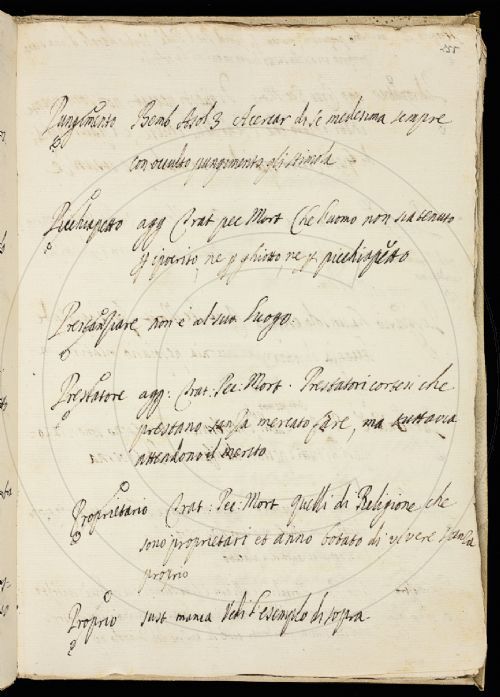 255
Pungimento Bemb Asol 3 Acercar di se medesima sempre
con occulto pungimento gli stimola
Picchiapetto agg Trat pec Mort Che l'uomo non sia tenuto
p ipocrito, ne p ghiotto, ne p picchiapetto
Prestanziare non è al suo luogo
Prestatore agg: Trat: Pec: Mort. Prestatori cortesi che
prestano senza mercato fare, ma tuttavia
attendono il merito
Proprietario Trat: Pec: Mort quelli di Religione che
sono proprietari et anno botato di vivere sanza
proprio
Proprio sust manca Vedi l'esemplo di sopra